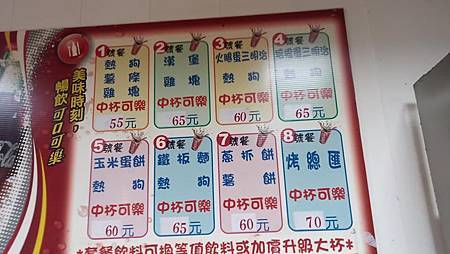 美味時刻，
暢飲可口可樂
1號餐
熱狗
薯條
雞塊
中杯可樂
55元
2號餐
漢堡
雞塊
中杯可樂
65元
3號餐
火腿蛋三明治
熱狗
中杯可樂
60元
4號餐
三明治
熱狗
中杯可樂
65元
5號餐
玉米蛋餅
熱狗
中杯可樂
60元
6號餐
鐵板麵
熱狗
中杯可樂
65元
7號餐
蔥抓餅
薯餅
中杯可樂
60元
8號餐
烤總匯
中杯可樂
70元
*套餐飲料可換等值飲料或加價升級大杯*